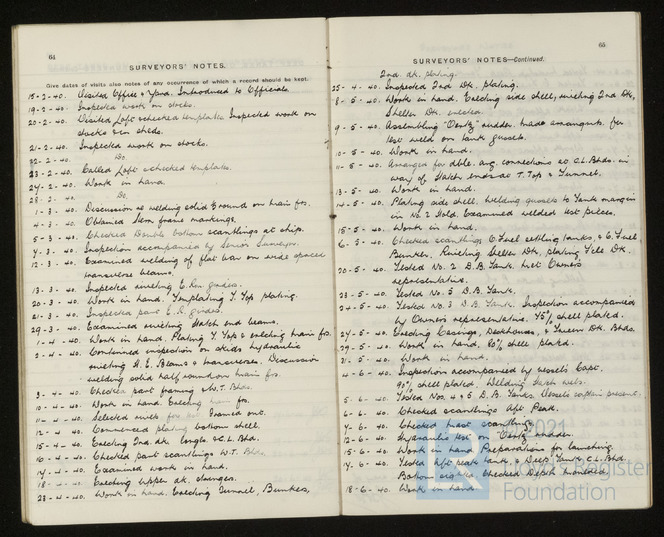 64
SURVEYORS' NOTES.
Give dates of visits also notes of any occurrence of which a record should be kept.
15-2-40. Visited Office & Yard. Introduced to Officials.
19-2-40. Inspected work on stocks.
20-2-40. Visited Loft & checked templates. Inspected work on
stocks & in sheds.
21-2-40. Inspected work on stocks.
22-2-40. Do.
23-2-40. Called Loft & checked templates.
24-2-40. Work in hand.
28-2-40. Do.
1-3-40. Discussion re welding solid round on main frs.
4-3-40. Obtained Stern frame markings.
5-3-40. Checked Double bottom scantlings at ship.
7-3-40. Inspection accompanied by Senior Surveyor.
12-3-40. Examined welding of flat bar on wide spaced
transverse beams.
13-3-40. Inspected riveting E. Rm. girders.
20-3-40. Work in hand. Templating T. Top plating.
21-3-40. Inspected part E.R. girders.
29-3-40. Examined riveting Hatch end beams.
1-4-40. Work in hand. Plating T. Tops & erecting main frs.
2-4-40. Continued inspection on skids hydraulic
riveting H.E. Beams & transverses. Discussion
welding solid half round on main frs.
3-4-40. Checked part framing & W.T. Bhds.
10-4-40. Work in hand. Erecting main frs.
11-4-40. Selected rivets for test. Turned out.
12-4-40. Commenced plating bottom shell.
15-4-40. Erecting 2nd. dk. longls & C.L. Bhd.
16-4-40. Checked part scantlings W.T. Bhds.
17-4-40. Examined work in hand.
18-4-40. Erecting upper dk. stringers.
23-4-40. Work in hand. Erecting Tunnel, Bunker,
65
SURVEYORS' NOTES—Continued.
2nd. dk. plating.
25-4-40. Inspected 2nd Dk. plating.
8-5-40. Work in hand. Erecting side shell, riveting 2nd Dk,
Shelter Dk. erected.
9-5-40. Assembling "Oertz" rudder. Made arrangmts. for
test weld on tank gussets.
10-5-40. Work in hand.
11-5-40. Arranged for dble. ang. connections to C.L. Bhds. in
way of Hatch ends at T. Top & Tunnel.
13-5-40. Work in hand.
14-5-40. Plating side shell. Welding gussets to Tank margin
in No. 2 Hold. Examined welded test pieces.
15-5-40. Work in hand.
Checked scantlings O. Fuel settling tanks & O. Fuel
Bunker. Riveting Shelter Dk, plating F'cle Dk.
20-5-40. Tested No. 2 D.B. Tank. Met Owners
representative.
23-5-40. Tested No. 5 D.B. Tank.
24-5-40. Tested No. 3 D.B. Tank. Inspection accompanied
by Owners representative. 45% shell plated.
27-5-40. Erecting Casings, Deckhouses, & Tween Dk. Bhds.
29-5-40. Work in hand, 80% shell plated.
31-5-40. Work in hand.
4-6-40. Inspection accompanied by vessel's Capt.
90% shell plated. Welding hatch webs.
5-6-40. Tested Nos. 4 & 5 D.B. Tanks. Vessels captain present.
6-6-40. Checked scantlings Aft. Peak.
7-6-40. Checked mast scantlings.
12-6-40. Hydraulic test on "Oertz" rudder.
15-6-40. Work in hand. Preparations for launching.
17-6-40. Tested Aft peak tank & Deep Tank C.L. Bhd.
Checked Depth moulded.
18-6-40. Work in hand.
© 2021
LR
Lloyd's Register
Foundation